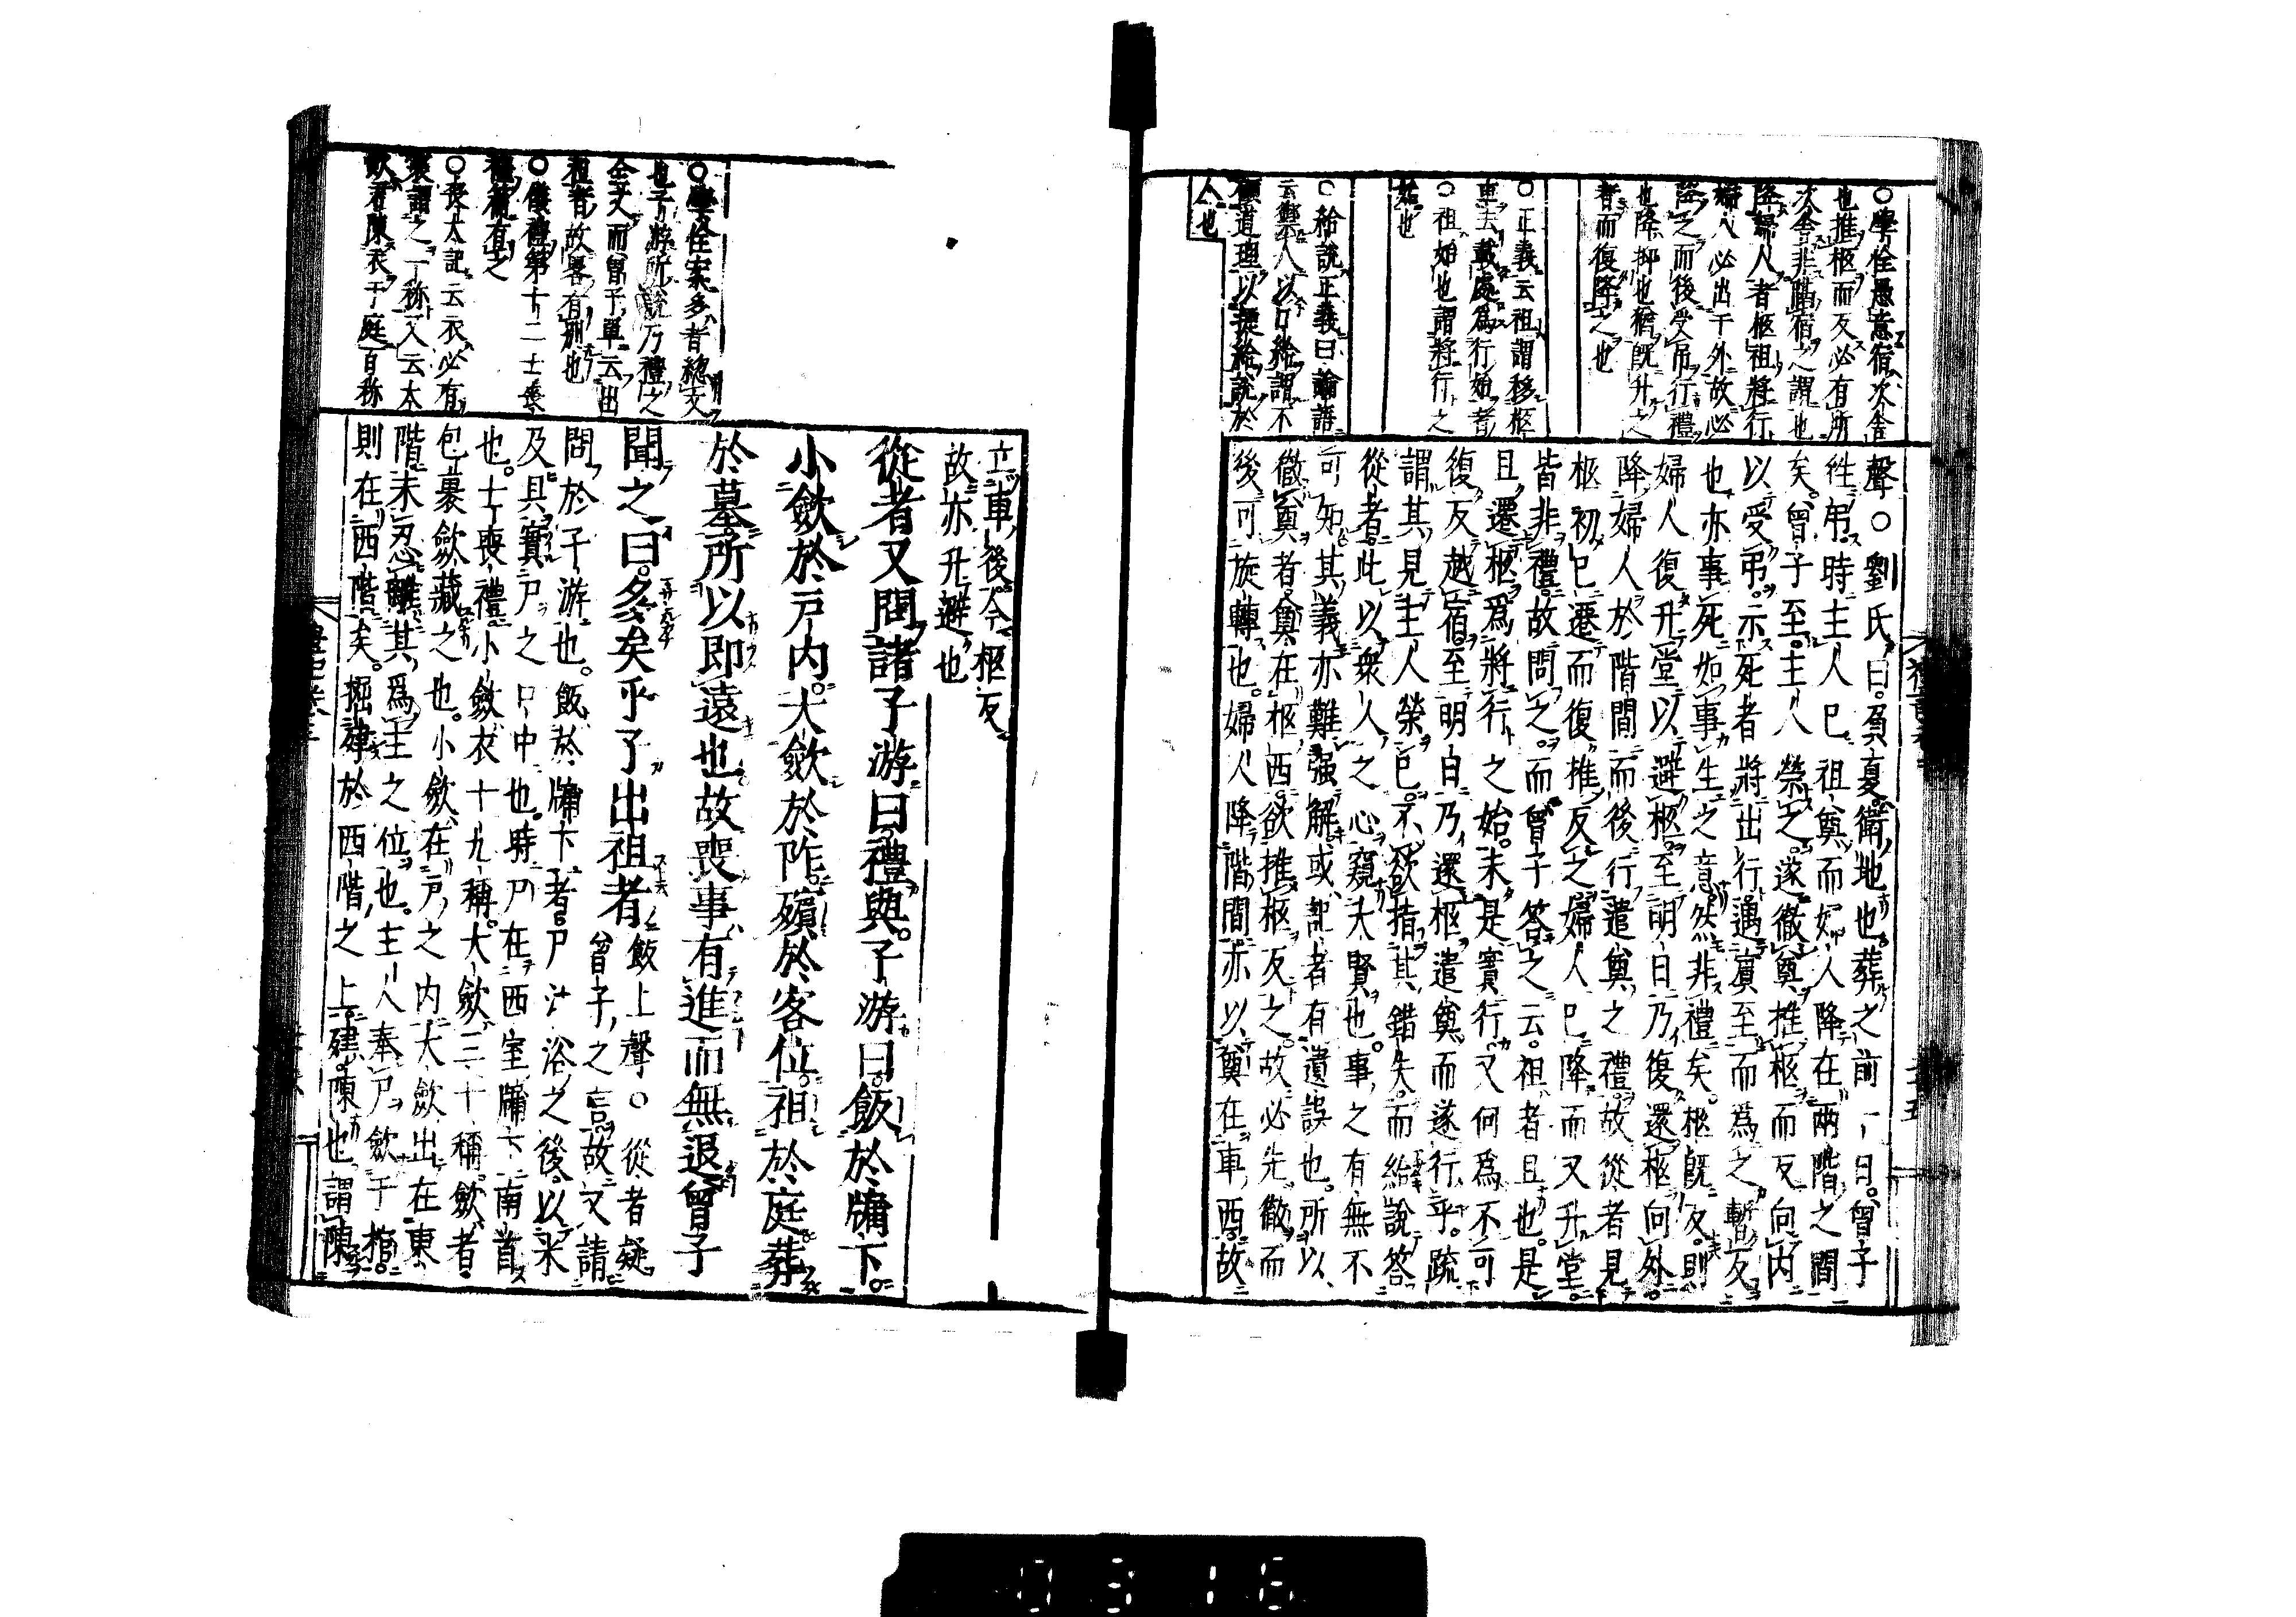 ○學佺愚意宿次舍
也推柩而反必有所
次舍非踰宿之謂也
降婦人者柩祖將行
婦人必出于外故必
降之而後受吊行禮
也降抑也猶既升之
者而復降之也
○正義云祖謂移柩
車去載處爲行始者
○祖始也謂將行之
始也
○給說正義曰論語
云禦人以口給謂不
顧道理以捷給說於
人也
聲○劉氏曰負夏衛地也葬之前一日曾子
徃吊時主人已祖奠而婦人降在兩階之間
矣曾子至主人榮之遂徹奠推柩而反向內
以受弔示死者將出行遇賓至而爲之暫反
也亦事死如事生之意然非禮矣柩既反則
婦人復升堂以避柩至明日乃復還柩向外
降婦人於階間而後行遣奠之禮故從者見
柩初已遷而復推反之婦人已降而又升堂
皆非禮故問之而曾子答之云祖者且也是
且還柩爲將行之始未是實行又何爲不可
復反越宿至明白乃還柩遣奠而遂行乎疏
謂其見主人榮已不欲指其錯失而紿說答
從者此以衆人之心窺大賢也事之有無不
可知其義亦難强解或記者有遺誤也所以
徹奠者奠在柩西欲推柩反之故必先徹而
後可旋轉也婦人降階間亦以奠在車西故
立車後今柩反
故亦升避也
從者又問諸子游曰禮與子游曰飯於牖下
小斂於戶內大斂於阼殯於客位祖於庭葬
於墓所以即遠也故喪事有進而無退曾子
聞之曰多矣乎予出祖者
飯上聲○從者疑
曾子之言故又請
問於子游也飯於牖下者尸沐浴之後以米
及貝實尸之口中也時尸在西室牖下南首
也士喪禮小斂衣十九稱大斂三十稱斂者
包裹斂藏之也小斂在戶之內大斂出在東
階未忍離其爲主之位也主人奉尸斂于棺
則在西階矣掘肂於西階之上肂陳也謂陳
○學佺案多者總文
也子游所說乃禮之
全文而曾子單云出
祖者故畧有刪也
○儀禮第十二士喪
禮篇有之
○喪大記云衣必有
裳謂之一稱又云大
歛君陳衣于庭百称